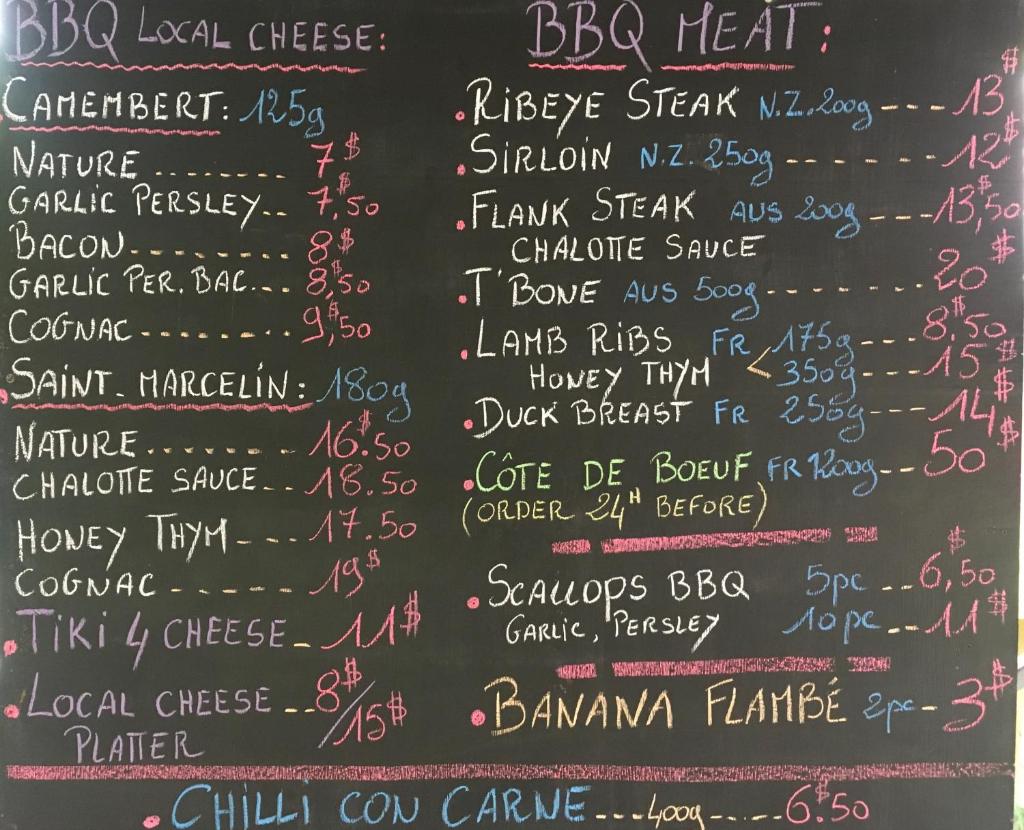 BBQ LOCAL CHEESE:
CAMEMBERT: 125g
NATURE ........ 7$
GARLIC PERSLEY.. 7,50$
BACON-------- 8$
GARLIC PER. BAC.... 8,50$
COGNAC -------- 9,50$
SAINT-MARCELIN: 180g
NATURE ....... 16.50$
CHALOTTE SAUCE -- 18.50
HONEY THYM ---- 17.50
COGNAC ------ 19$
TIKI 4 CHEESE - 11$
LOCAL CHEESE -- 8$/15$
PLATTER
BBQ MEAT:
RIBEYE STEAK N.Z. 200g ---- 13$
SIRLOIN N.Z. 250g ------- 12$
FLANK STEAK AUS 200g ---- 13,50$
CHALOTTE SAUCE
T'BONE AUS 500g ------- 20$
LAMB RIBS FR 175g --- 8,50$
HONEY THYM 350g --- 15$
DUCK BREAST FR 250g --- 14$
CÔTE DE BOEUF FR 1200g -- 50$
(ORDER 24H BEFORE)
SCALLOPS BBQ 5pc -- 6,50$
GARLIC, PERSLEY 10pc -- 11$
BANANA FLAMBÉ 2pc - 3$
CHILLI CON CARNE --- 400g ----- 6.50$